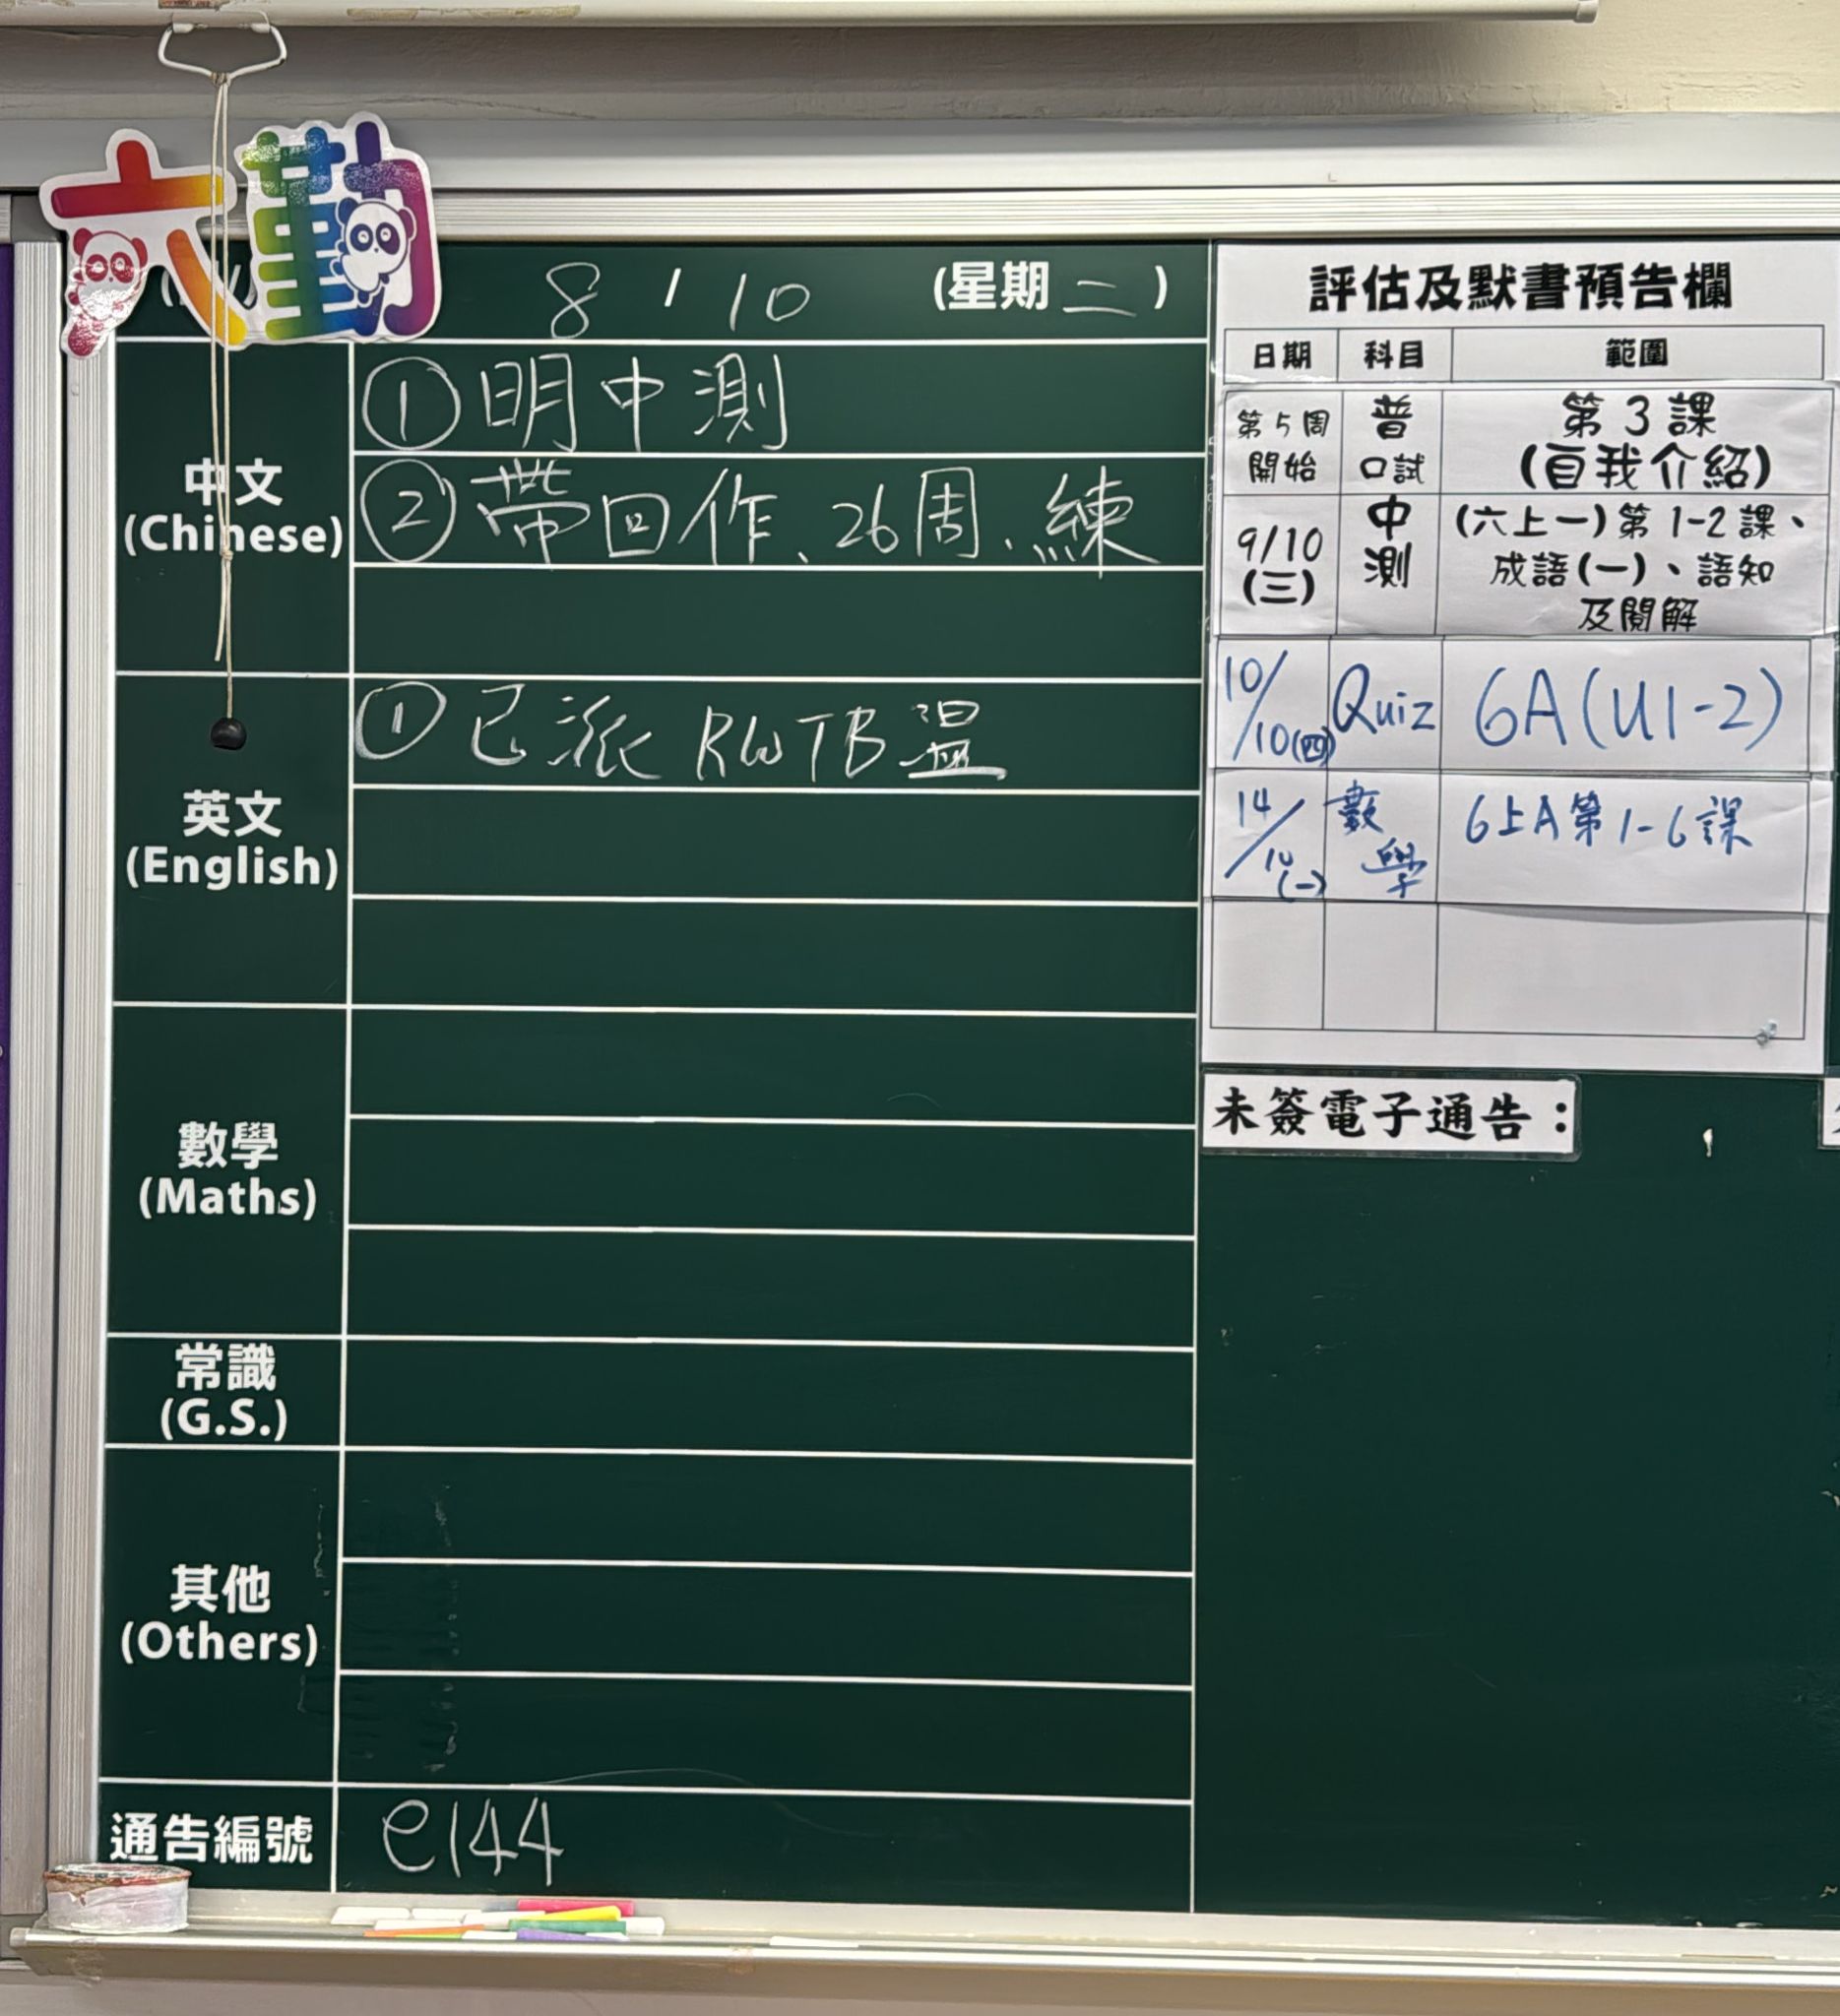 六勤
8 / 10 (星期二)
中文
(Chinese)
①明中測
②帶回作、26周、練
英文
(English)
①已派 RWTB 溫
數學
(Maths)
常識
(G.S.)
其他
(Others)
通告編號
e144
評估及默書預告欄
日期 科目 範圍
第5周
開始
普
口試
第3課
(自我介紹)
9/10
(三)
中
測
(六上一)第1-2課、
成語(一)、語知
及閱解
10/10(四) Quiz 6A(U1-2)
14/10(一) 數學 6上A第1-6課
未簽電子通告：